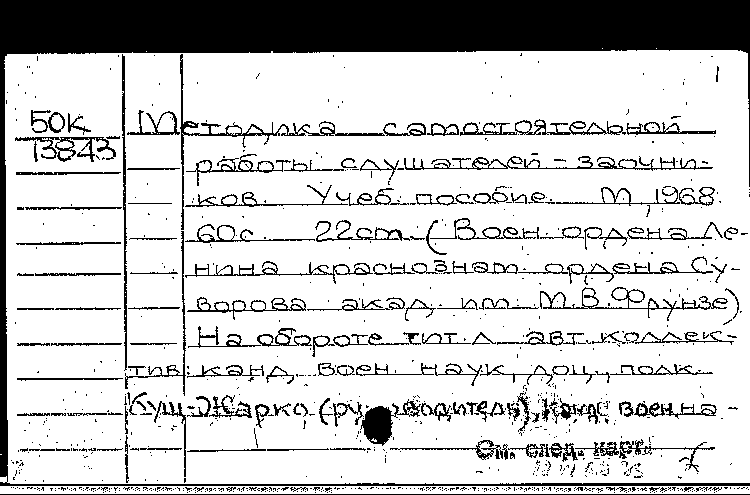 1
50к Методика самостоятельной
13843
работы слушателей - заочни-
ков. Учеб. пособие. М, 1968.
60с. 22cm. (Воен. ордена Ле-
нина краснознам. ордена Су-
ворова акад. им. М.В.Фрунзе)
На обороте тит. л. авт. коллек-
тив: канд. воен. наук, доц., полк.
Кущ-Жарко (руководитель), канд. воен. на-
См. след. карт.